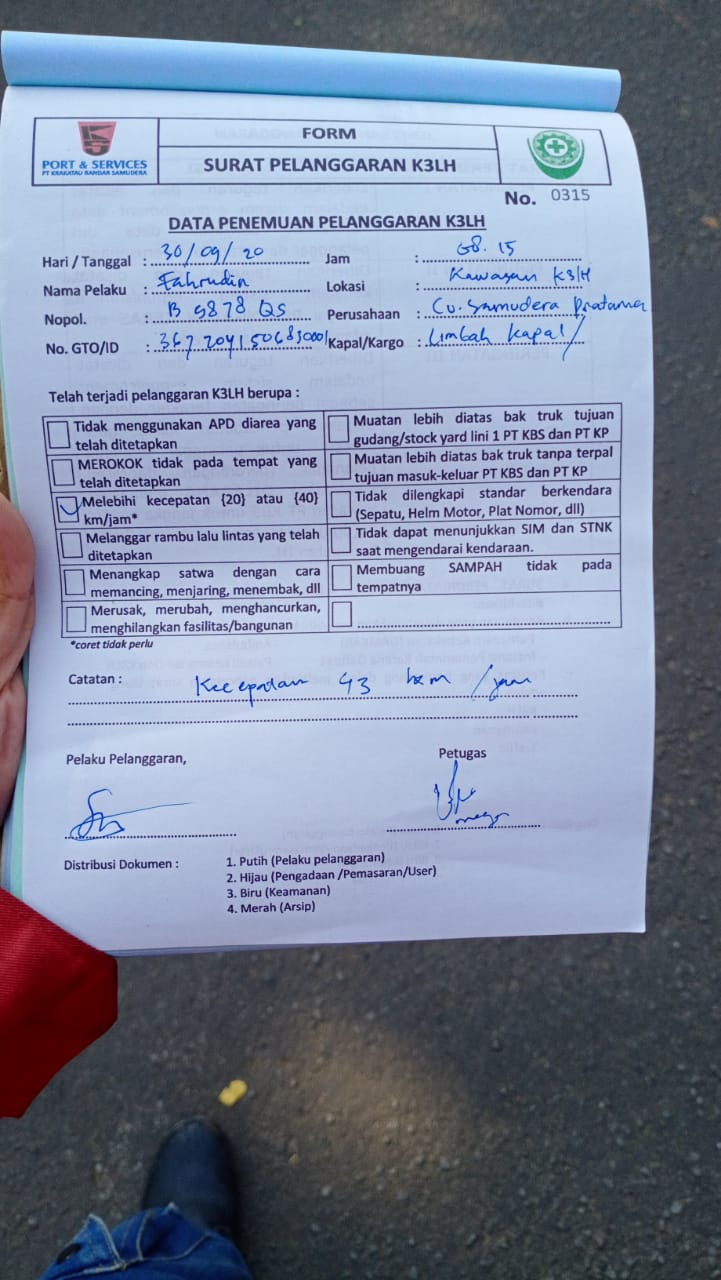 PORT & SERVICES
PT KRAKATAU BANDAR SAMUDERA
FORM
SURAT PELANGGARAN K3LH
No. 0315
DATA PENEMUAN PELANGGARAN K3LH
Hari / Tanggal : 30/09/20 Jam : 08.15
Nama Pelaku : Fahrudin Lokasi : Kawasan K3LH
Nopol. : B 9878 QS Perusahaan : Cv. Samudera Pratama
No. GTO/ID : Kapal/Kargo : Limbah Kapal/
Telah terjadi pelanggaran K3LH berupa :
Tidak menggunakan APD diarea yang telah ditetapkan
Muatan lebih diatas bak truk tujuan gudang/stock yard lini 1 PT KBS dan PT KP
MEROKOK tidak pada tempat yang telah ditetapkan
Muatan lebih diatas bak truk tanpa terpal tujuan masuk-keluar PT KBS dan PT KP
Melebihi kecepatan {20} atau {40} km/jam*
Tidak dilengkapi standar berkendara (Sepatu, Helm Motor, Plat Nomor, dll)
Melanggar rambu lalu lintas yang telah ditetapkan
Tidak dapat menunjukkan SIM dan STNK saat mengendarai kendaraan.
Menangkap satwa dengan cara memancing, menjaring, menembak, dll
Membuang SAMPAH tidak pada tempatnya
Merusak, merubah, menghancurkan, menghilangkan fasilitas/bangunan
*coret tidak perlu
Catatan : Kecepatan 43 km/jam
Pelaku Pelanggaran,
Petugas
Distribusi Dokumen :
1. Putih (Pelaku pelanggaran)
2. Hijau (Pengadaan /Pemasaran/User)
3. Biru (Keamanan)
4. Merah (Arsip)